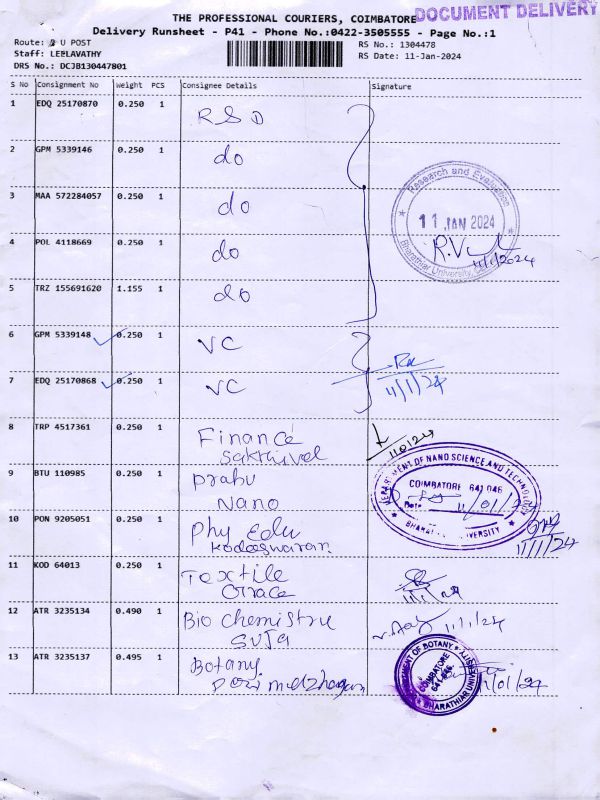 THE PROFESSIONAL COURIERS, COIMBATORE DOCUMENT DELIVERY
Delivery Runsheet - P41 - Phone No.:0422-3505555 - Page No.:1
Route: U POST
RS No.: 1304478
Staff: LEELAVATHY
RS Date: 11-Jan-2024
DRS No.: DCJB130447801
S No Consignment No Weight PCS Consignee Details Signature
1 EDQ 25170870 0.250 1 RSD
2 GPM 5339146 0.250 1 do
3 MAA 572284057 0.250 1 do
4 POL 4118669 0.250 1 do
5 TRZ 155691620 1.155 1 do
Research and Evaluation
11 JAN 2024
Bharathiar University,
11/1/2024
6 GPM 5339148 0.250 1 VC
7 EDQ 25170868 0.250 1 VC
11/1/24
8 TRP 4517361 0.250 1 Finance
Sakthivel
9 BTU 110985 0.250 1 Prabu
Nano
DEPARTMENT OF NANO SCIENCE AND TECHNOLOGY
COIMBATORE 641 046
Date 11/01/24
BHARATHIAR UNIVERSITY
10 PON 9205051 0.250 1 Phy Edu
11/1/24
11 KOD 64013 0.250 1 Textile
Grace
12 ATR 3235134 0.490 1 Bio Chemistry
Suja
11/1/24
13 ATR 3235137 0.495 1 Botany
DEPARTMENT OF BOTANY
COIMBATORE
641 046
BHARATHIAR UNIVERSITY
11/01/24